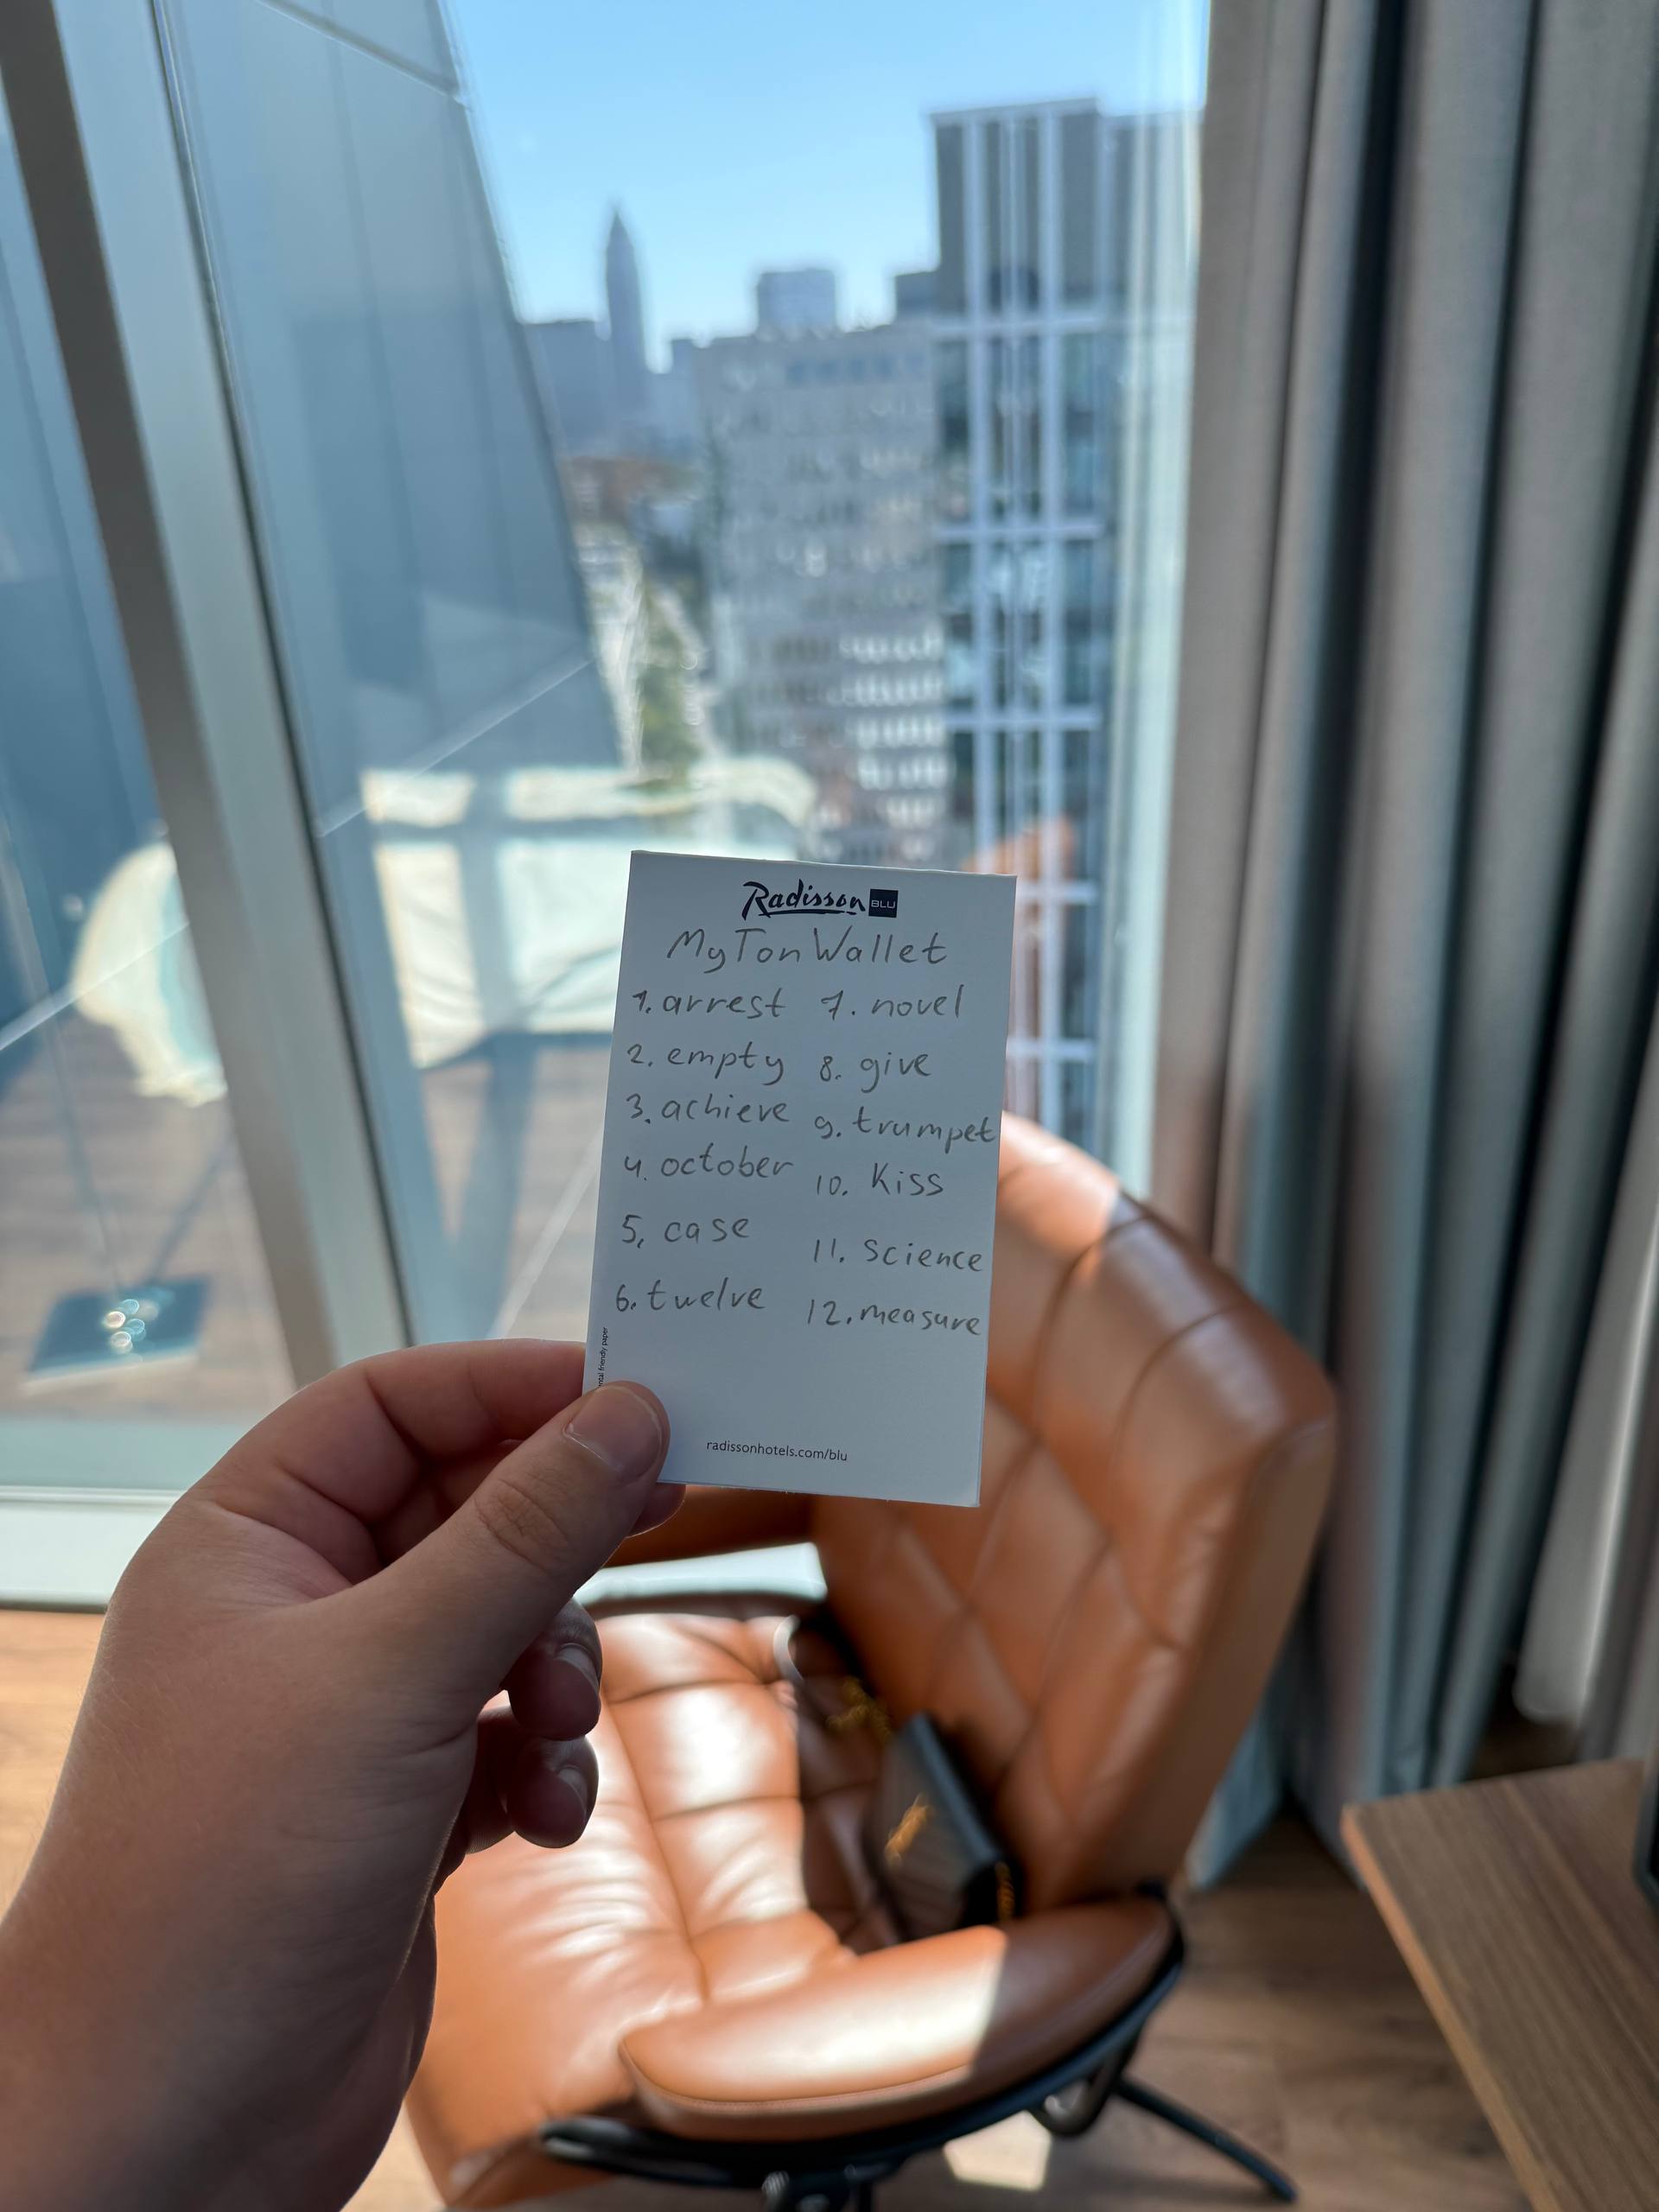 Radisson BLU
MyTonWallet
1. arrest
2. empty
3. achieve
4. october
5. case
6. twelve
7. novel
8. give
9. trumpet
10. Kiss
11. Science
12. measure
friendly paper
radissonhotels.com/blu